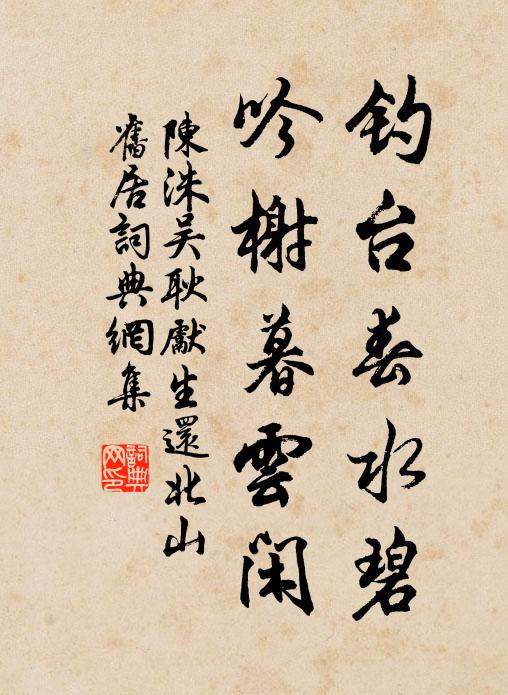 钓台春水碧
吟榭暮雲闲
陳洙吴耿獻生還北山
舊居詞典網集
詞典网印